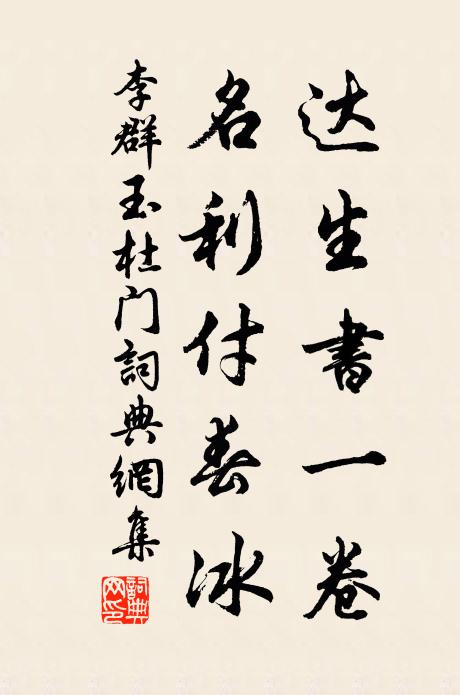 达生书一卷
名利付春冰
李群玉杜门詞典網集
詞典网印